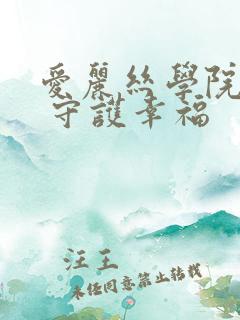 愛麗絲學院
守護幸福
汪王
未經同意禁止轉載